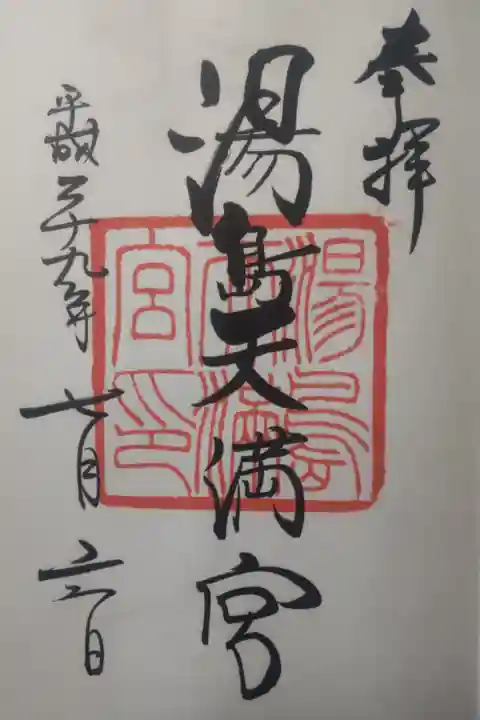 奉拝
湯島天満宮
平成二十九年 七月 日
湯島
天満
宮印